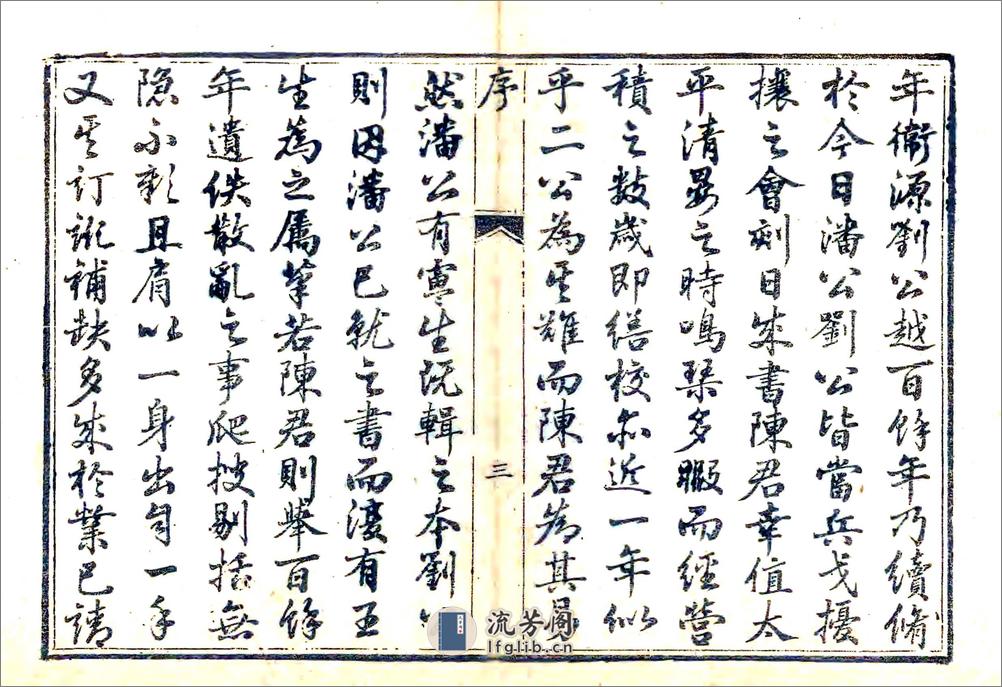 年衛源劉公越百餘年乃續脩
於今日潘公劉公皆當兵戈擾
攘之會刻日成書陳君幸值太
平清晏之時鳴琴多暇而經營
積之數歲即繕校亦近一年似
乎二公為其難而陳君為其易
序
三
然潘公有寧生既輯之本劉公
則因潘公已就之書而復有王
生為之屬筆若陳君則舉百餘
年遺佚散亂之事爬搜剔括無
隱不彰且肩以一身出自一手
又其訂訛補缺多成於業已請
流芳阁
lfglib.cn